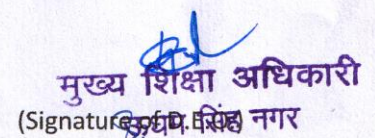 मुख्य शिक्षा अधिकारी
(Signature of D.E.O.) ऊधम सिंह नगर